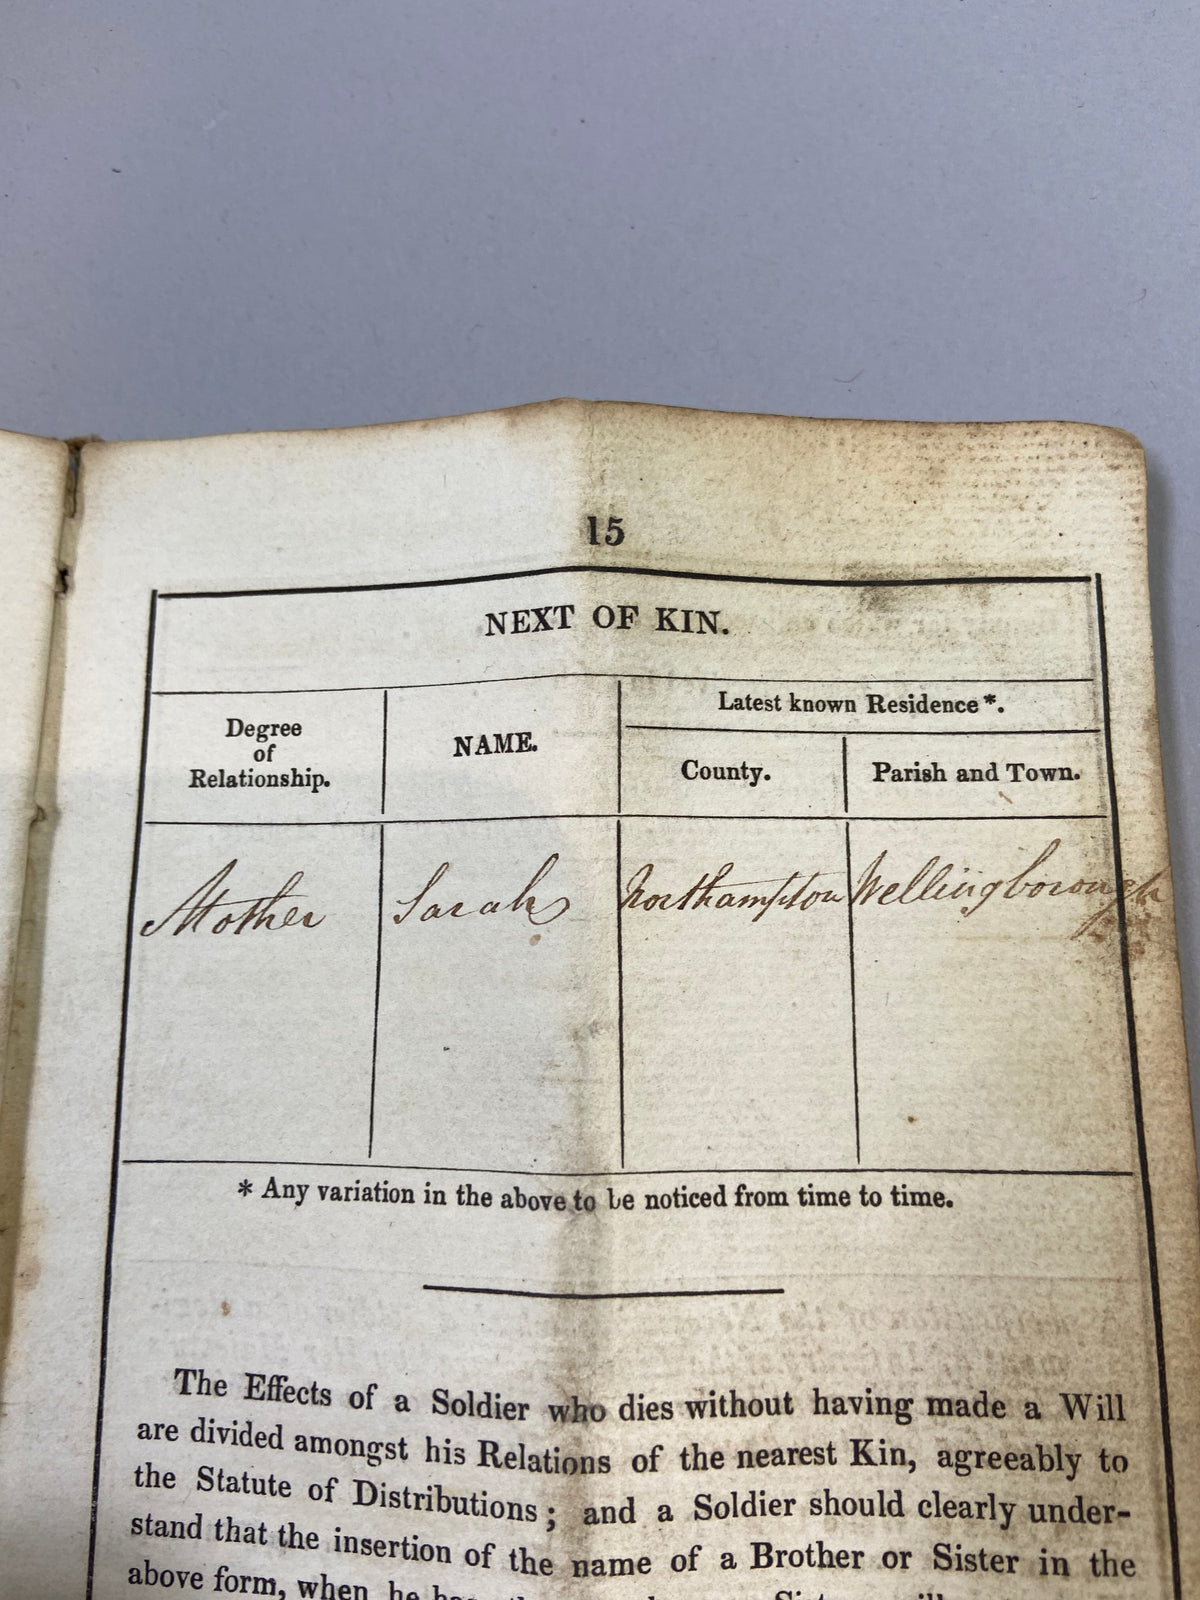 15
NEXT OF KIN.
Degree of Relationship.
NAME.
Latest known Residence*.
County.
Parish and Town.
Mother Sarah Northampton Wellingborough
* Any variation in the above to be noticed from time to time.
The Effects of a Soldier who dies without having made a Will
are divided amongst his Relations of the nearest Kin, agreeably to
the Statute of Distributions; and a Soldier should clearly under-
stand that the insertion of the name of a Brother or Sister in the
above form, when he